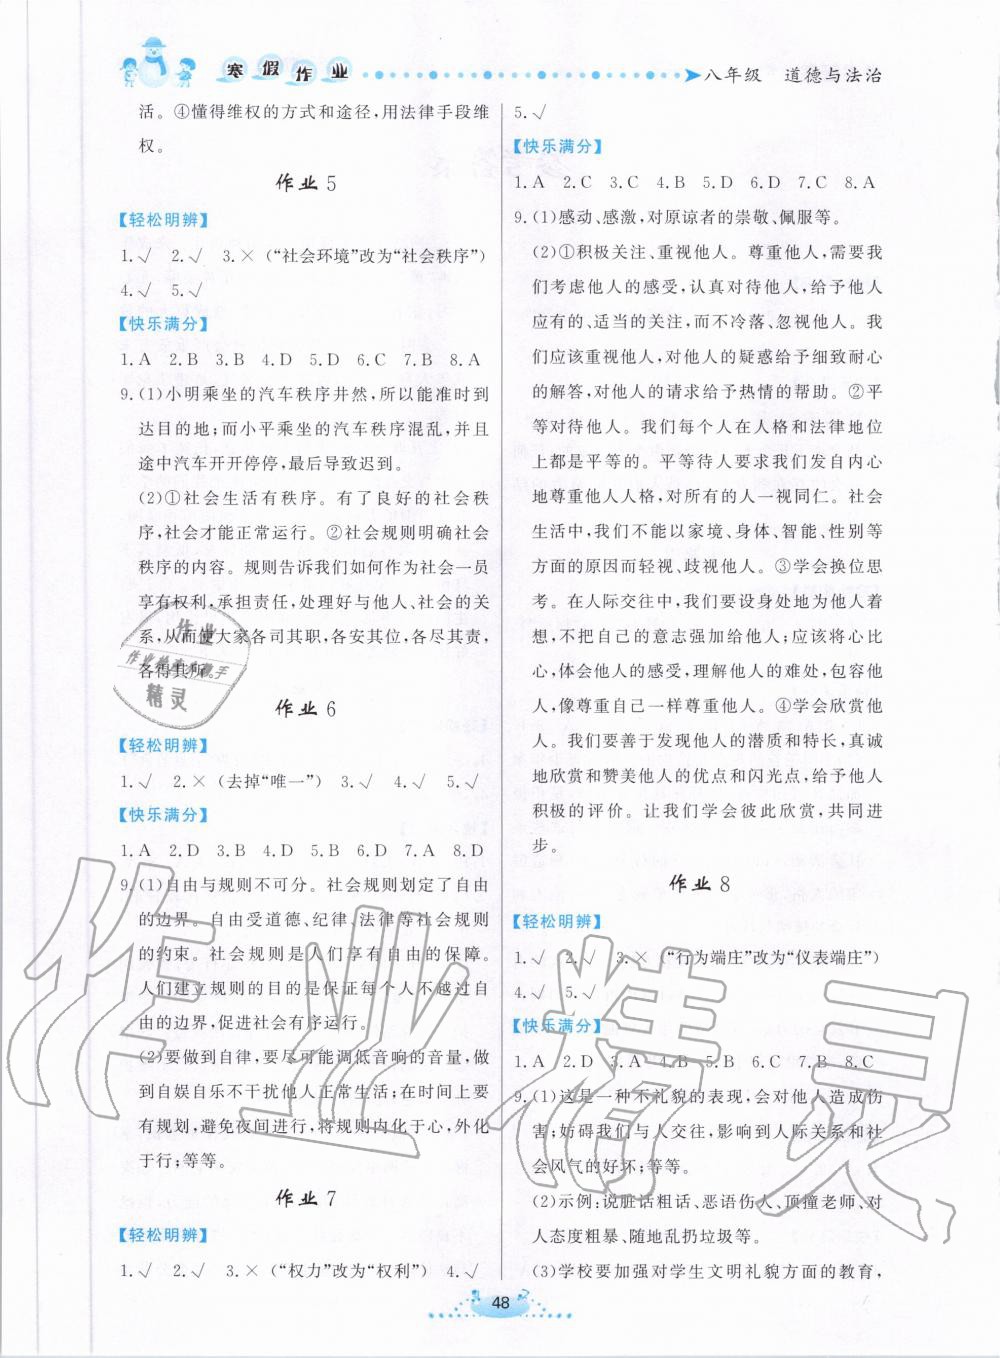 寒假作业
八年级 道德与法治
活。④懂得维权的方式和途径,用法律手段维
权。
作业5
【轻松明辨】
1.√ 2.√ 3.×(“社会环境”改为“社会秩序”)
4.√ 5.√
【快乐满分】
1.A 2.B 3.B 4.D 5.D 6.C 7.B 8.A
9.(1)小明乘坐的汽车秩序井然,所以能准时到
达目的地;而小平乘坐的汽车秩序混乱,并且
途中汽车开开停停,最后导致迟到。
(2)①社会生活有秩序。有了良好的社会秩
序,社会才能正常运行。②社会规则明确社会
秩序的内容。规则告诉我们如何作为社会一员
享有权利,承担责任,处理好与他人、社会的关
系,从而使大家各司其职,各安其位,各尽其责,
各得其所。
作业6
【轻松明辨】
1.√ 2.×(去掉“唯一”) 3.√ 4.√ 5.√
【快乐满分】
1.A 2.D 3.B 4.D 5.D 6.D 7.A 8.D
9.(1)自由与规则不可分。社会规则划定了自由
的边界。自由受道德、纪律、法律等社会规则
的约束。社会规则是人们享有自由的保障。
人们建立规则的目的是保证每个人不越过自
由的边界,促进社会有序运行。
(2)要做到自律,要尽可能调低音响的音量,做
到自娱自乐不干扰他人正常生活;在时间上要
有规划,避免夜间进行,将规则内化于心,外化
于行;等等。
作业7
【轻松明辨】
1.√ 2.√ 3.×(“权力”改为“权利”) 4.√
5.√
【快乐满分】
1.A 2.C 3.C 4.B 5.D 6.D 7.C 8.A
9.(1)感动、感激,对原谅者的崇敬、佩服等。
(2)①积极关注、重视他人。尊重他人,需要我
们考虑他人的感受,认真对待他人,给予他人
应有的、适当的关注,而不冷落、忽视他人。我
们应该重视他人,对他人的疑惑给予细致耐心
的解答,对他人的请求给予热情的帮助。②平
等对待他人。我们每个人在人格和法律地位
上都是平等的。平等待人要求我们发自内心
地尊重他人人格,对所有的人一视同仁。社会
生活中,我们不能以家境、身体、智能、性别等
方面的原因而轻视、歧视他人。③学会换位思
考。在人际交往中,我们要设身处地为他人着
想,不把自己的意志强加给他人;应该将心比
心,体会他人的感受,理解他人的难处,包容他
人,像尊重自己一样尊重他人。④学会欣赏他
人。我们要善于发现他人的潜质和特长,真诚
地欣赏和赞美他人的优点和闪光点,给予他人
积极的评价。让我们学会彼此欣赏,共同进
步。
作业8
【轻松明辨】
1.√ 2.√ 3.×(“行为端庄”改为“仪表端庄”)
4.√ 5.√
【快乐满分】
1.A 2.D 3.A 4.B 5.B 6.C 7.B 8.C
9.(1)这是一种不礼貌的表现,会对他人造成伤
害;妨碍我们与人交往,影响到人际关系和社
会风气的好坏;等等。
(2)示例:说脏话粗话、恶语伤人、顶撞老师、对
人态度粗暴、随地乱扔垃圾等。
(3)学校要加强对学生文明礼貌方面的教育,
48
作业精灵